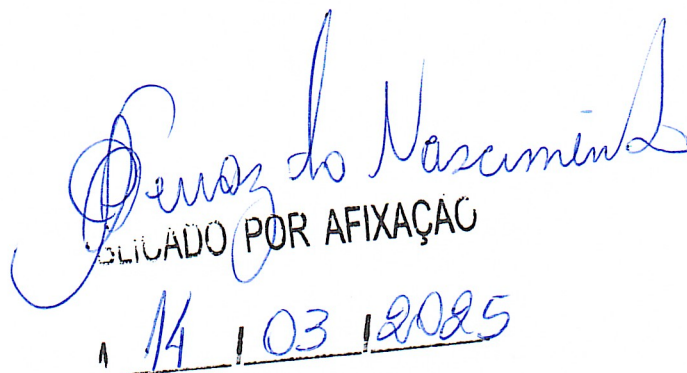 do Nascimento
PUBLICADO POR AFIXAÇÃO
14 / 03 / 2025